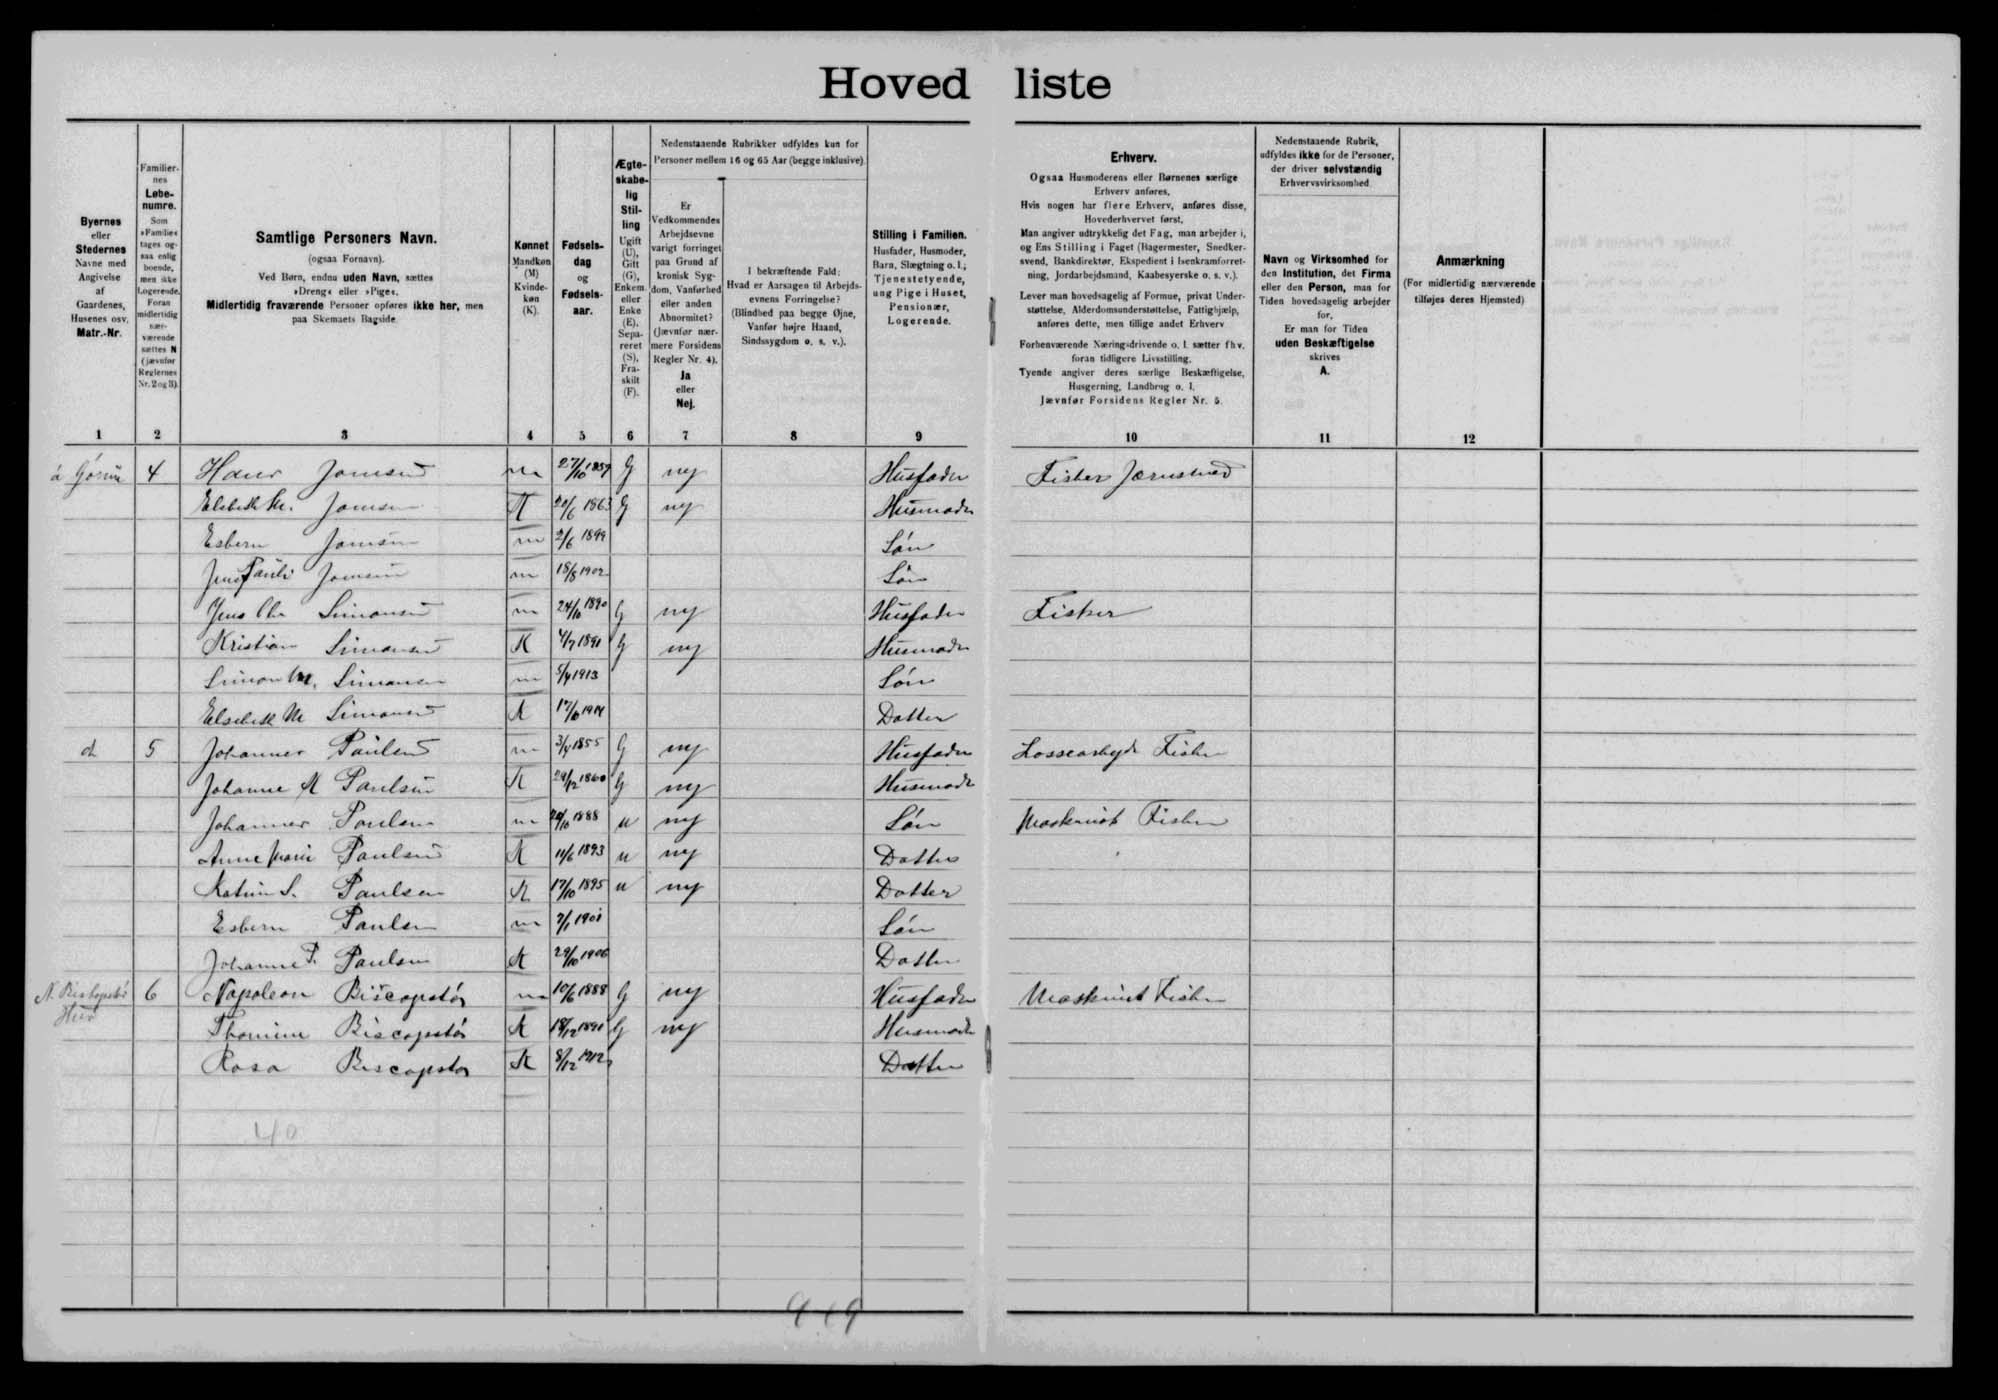 Hovedliste
Byernes eller Stedernes Navne med Angivelse af Gaardenes, Husenes osv. Matr.-Nr.
Familiernes Løbenumre. Som »Familie« tages ogsaa enlig boende, men ikke Logerende. Foran midlertidig nærværende sættes N (jævnfør Reglernes Nr. 2 og 3).
Samtlige Personers Navn.
(ogsaa Fornavn).
Ved Børn, endnu uden Navn, sættes »Dreng« eller »Pige«.
Midlertidig fraværende Personer opføres ikke her, men paa Skemaets Bagside.
Kønnet Mandkøn (M) Kvindekøn (K).
Fødselsdag og Fødselsaar.
Ægteskabelig Stilling Ugift (U), Gift (G), Enkem. eller Enke (E), Separeret (S), Fraskilt (F).
Nedenstaaende Rubrikker udfyldes kun for Personer mellem 16 og 65 Aar (begge inklusive).
Er Vedkommendes Arbejdsevne varigt forringet paa Grund af kronisk Sygdom, Vanførhed eller anden Abnormitet? (Jævnfør nærmere Forsidens Regler Nr. 4). Ja eller Nej.
I bekræftende Fald: Hvad er Aarsagen til Arbejdsevnens Forringelse? (Blindhed paa begge Øjne, Vanfør højre Haand, Sindssygdom o. s. v.).
Stilling i Familien. Husfader, Husmoder, Barn, Slægtning o. l.; Tjenestetyende, ung Pige i Huset, Pensionær, Logerende.
Erhverv.
Ogsaa Husmoderens eller Børnenes særlige Erhverv anføres,
Hvis nogen har flere Erhverv, anføres disse, Hovederhvervet først,
Man angiver udtrykkelig det Fag, man arbejder i, og Ens Stilling i Faget (Bagermester, Snedkersvend, Bankdirektør, Ekspedient i Isenkramforretning, Jordarbejdsmand, Kaabesyerske o. s. v.).
Lever man hovedsagelig af Formue, privat Understøttelse, Alderdomsunderstøttelse, Fattighjælp, anføres dette, men tillige andet Erhverv
Forhenværende Næringsdrivende o. l. sætter fhv. foran tidligere Livsstilling.
Tyende angiver deres særlige Beskæftigelse, Husgerning, Landbrug o. l.
Jævnfør Forsidens Regler Nr. 5.
Nedenstaaende Rubrik, udfyldes ikke for de Personer, der driver selvstændig Erhvervsvirksomhed.
Navn og Virksomhed for den Institution, det Firma eller den Person, man for Tiden hovedsagelig arbejder for.
Er man for Tiden uden Beskæftigelse skrives A.
Anmærkning
(For midlertidig nærværende tilføjes deres Hjemsted)
1 2 3 4 5 6 7 8 9 10 11 12
4 Joensen m 27/10 1859 G nej Husfader Fisker
Elsebeth M. Joensen K 20/6 1863 G nej Husmoder
Esbern Joensen m 2/6 1899 Søn
Jens Pauli Joensen m 18/8 1902 Søn
Jens Chr Simonsen m 24/10 1890 G nej Husfader Fisker
Kristian Simonsen K 4/7 1891 G nej Husmoder
Simon M. Simonsen m 5/4 1913 Søn
Elsebeth M Simonsen K 1914 Datter
5 Johannes Paulsen m 3/4 1855 G nej Husfader Fisker
Johanne M Paulsen K 29/12 1860 G nej Husmoder
Johannes Paulsen m 1888 u nej Søn Maskinist Fisker
Anne Marie Paulsen K 11/6 1893 u nej Datter
Katrin S. Paulsen K 17/10 1895 u nej Datter
Esbern Paulsen m 7/1 1901 Søn
Johanne P. Paulsen K 29/10 1906 Datter
N. Biskopstø Hus 6 Napoleon Biscopstø m 10/6 1888 G nej Husfader Maskinist Fisker
Thomine Biscopstø K 18/12 1891 G nej Husmoder
Rosa Biscopstø K 8/12 1912 Datter
40